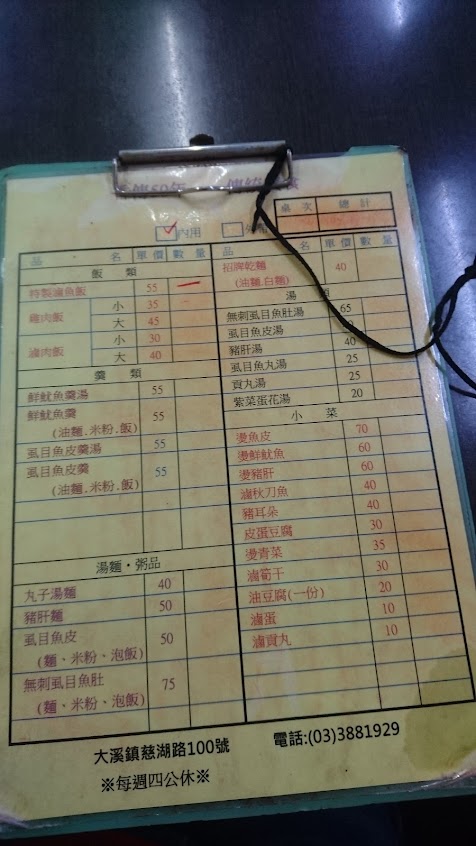 桌次 總計
內用
品名 單價 數量
飯類
特製滷魚飯 55
雞肉飯 小 35
大 45
滷肉飯 小 30
大 40
羹類
鮮魷魚羹湯 55
鮮魷魚羹 55
(油麵.米粉.飯)
虱目魚皮羹湯 55
虱目魚皮羹 55
(油麵.米粉.飯)
湯麵・粥品
丸子湯麵 40
豬肝麵 50
虱目魚皮 50
(麵、米粉、泡飯)
無刺虱目魚肚 75
(麵、米粉、泡飯)
品名 單價 數量
招牌乾麵 40
(油麵.白麵)
湯類
無刺虱目魚肚湯 65
虱目魚皮湯
豬肝湯 40
虱目魚丸湯 25
貢丸湯 25
紫菜蛋花湯 20
小菜
燙魚皮 70
燙鮮魷魚 60
燙豬肝 60
滷秋刀魚 40
豬耳朵 40
皮蛋豆腐 30
燙青菜 35
滷筍干 30
油豆腐(一份) 20
滷蛋 10
滷貢丸 10
大溪鎮慈湖路100號 電話:(03)3881929
※每週四公休※